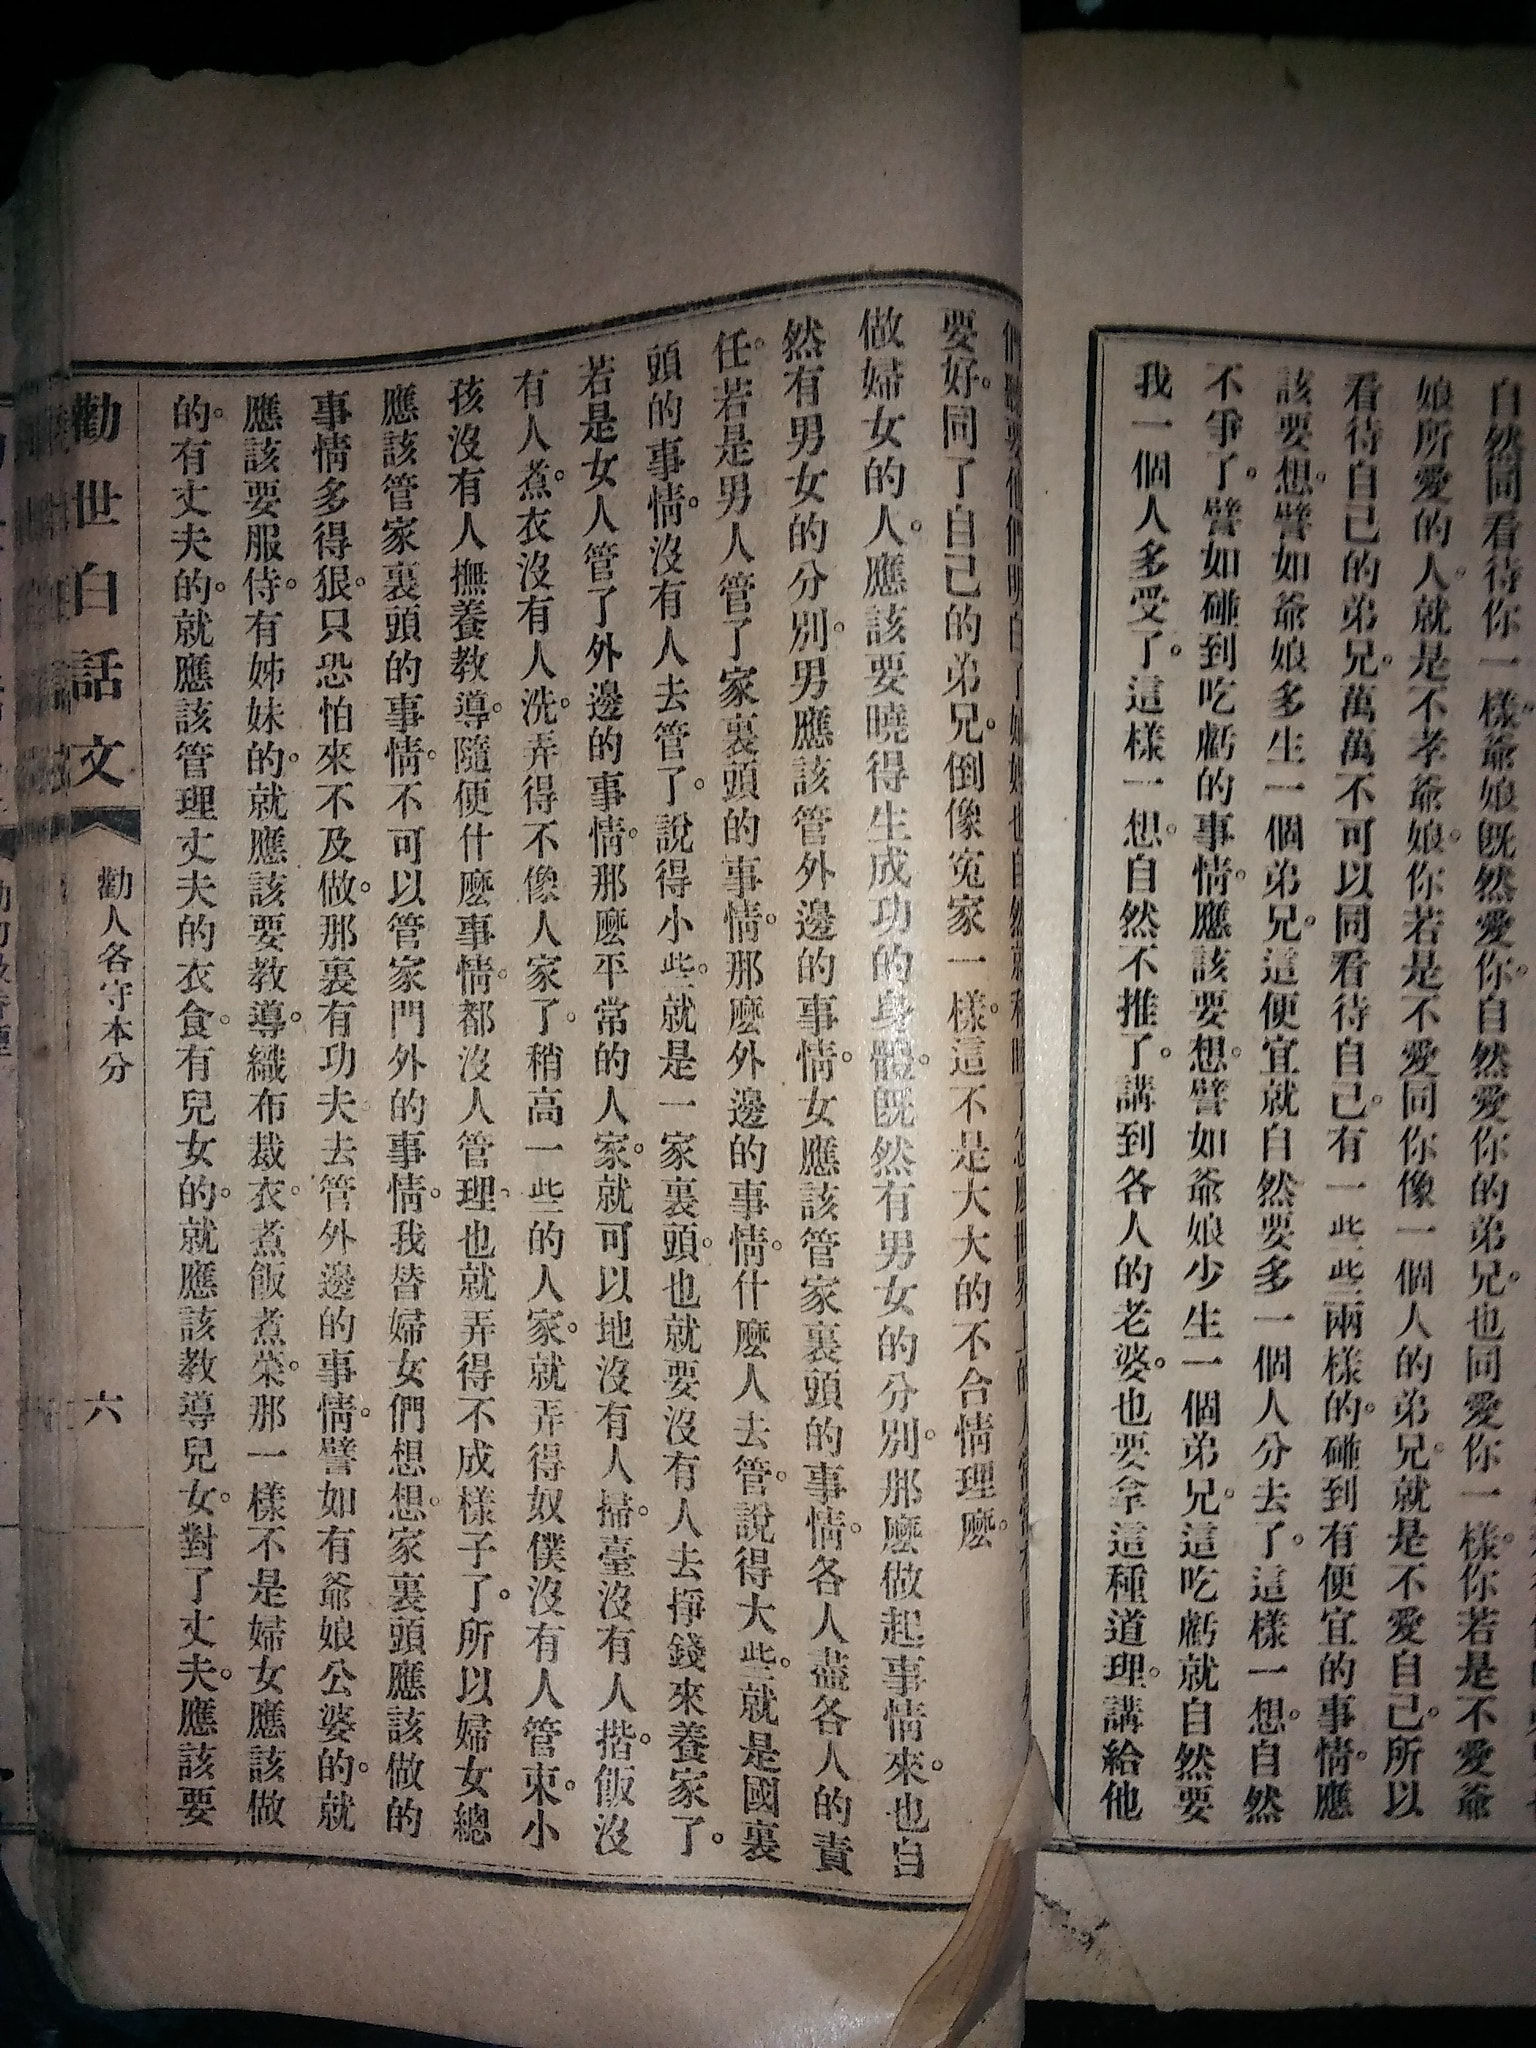 自然同看待你一樣。爺娘旣然愛你。自然愛你的弟兄。也同愛你一樣。你若是不愛爺
娘所愛的人。就是不孝爺娘。你若是不愛同你像一個人的弟兄。就是不愛自己。所以
看待自己的弟兄。萬萬不可以同看待自己。有一些些兩樣的。碰到有便宜的事情。應
該要想。譬如爺娘多生一個弟兄。這便宜就自然要多一個人分去了。這樣一想。自然
不爭了。譬如碰到吃虧的事情。應該要想。譬如爺娘少生一個弟兄。這吃虧就自然要
我一個人多受了。這樣一想。自然不推了。講到各人的老婆。也要拿這種道理。講給他
要好。同了自己的弟兄。倒像寃家一樣。這不是大大的不合情理麽。
做婦女的人。應該要曉得生成功的身體。旣然有男女的分別。那麽做起事情來。也自
然有男女的分別。男應該管外邊的事情。女應該管家裏頭的事情。各人盡各人的責
任。若是男人管了家裏頭的事情。那麽外邊的事情。什麽人去管。說得大些。就是國裏
頭的事情。沒有人去管了。說得小些。就是一家裏頭。也就要沒有人去掙錢來養家了。
若是女人管了外邊的事情。那麽平常的人家。就可以地沒有人掃。臺沒有人揩。飯沒
有人煮。衣沒有人洗。弄得不像人家了。稍高一些的人家。就弄得奴僕沒有人管束。小
孩沒有人撫養教導。隨便什麽事情。都沒人管理。也就弄得不成樣子了。所以婦女總
應該管家裏頭的事情。不可以管家門外的事情。我替婦女們想想。家裏頭應該做的
事情多得狠。只恐怕來不及做。那裏有功夫。去管外邊的事情。譬如有爺娘公婆的。就
應該要服侍。有姊妹的。就應該要教導。織布裁衣。煮飯煮菜。那一樣不是婦女應該做
的。有丈夫的。就應該管理丈夫的衣食。有兒女的。就應該教導兒女。對了丈夫。應該要
勸世白話文
勸人各守本分
六